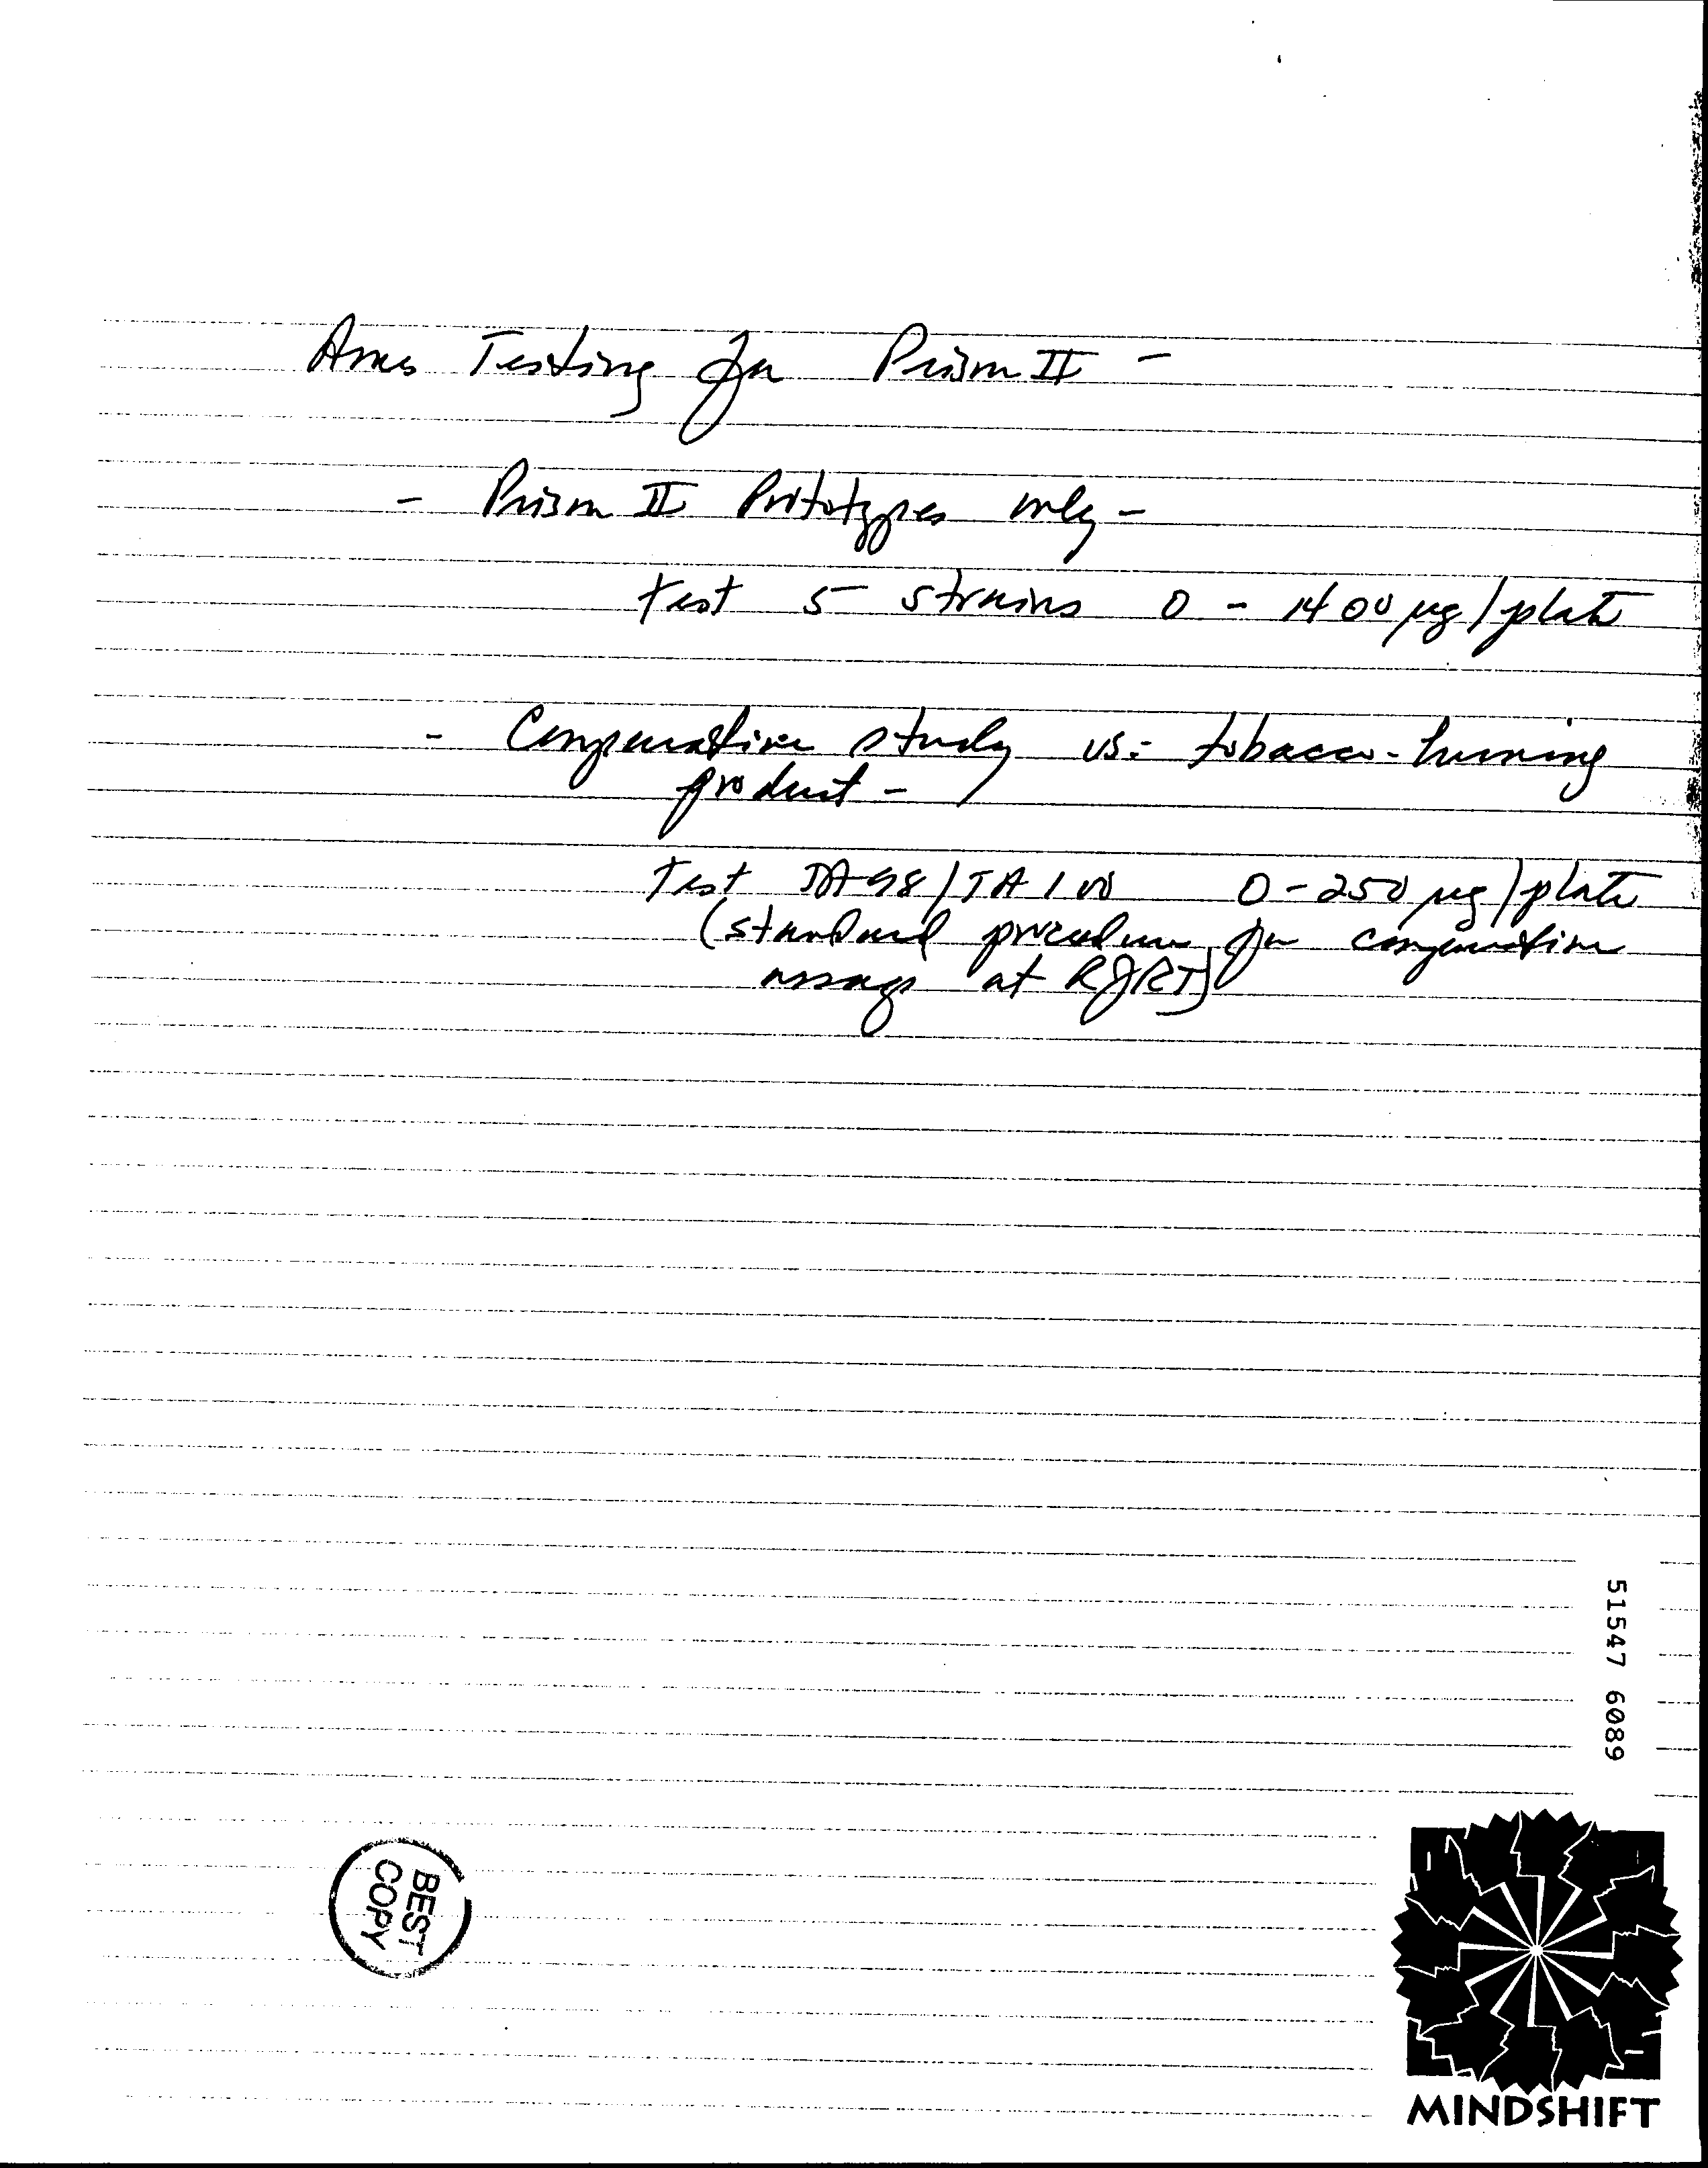 Ames Testing for Prism II -
- Prism II Prototypes only -
test 5 strains 0 - 1400 µg/plate
- Comparative study vs. tobacco-burning
product -
Test TA98/TA100 0-250 µg/plate
(standard procedure for comparative
assays at RJRT)
51547 6089
BEST
COPY
MINDSHIFT